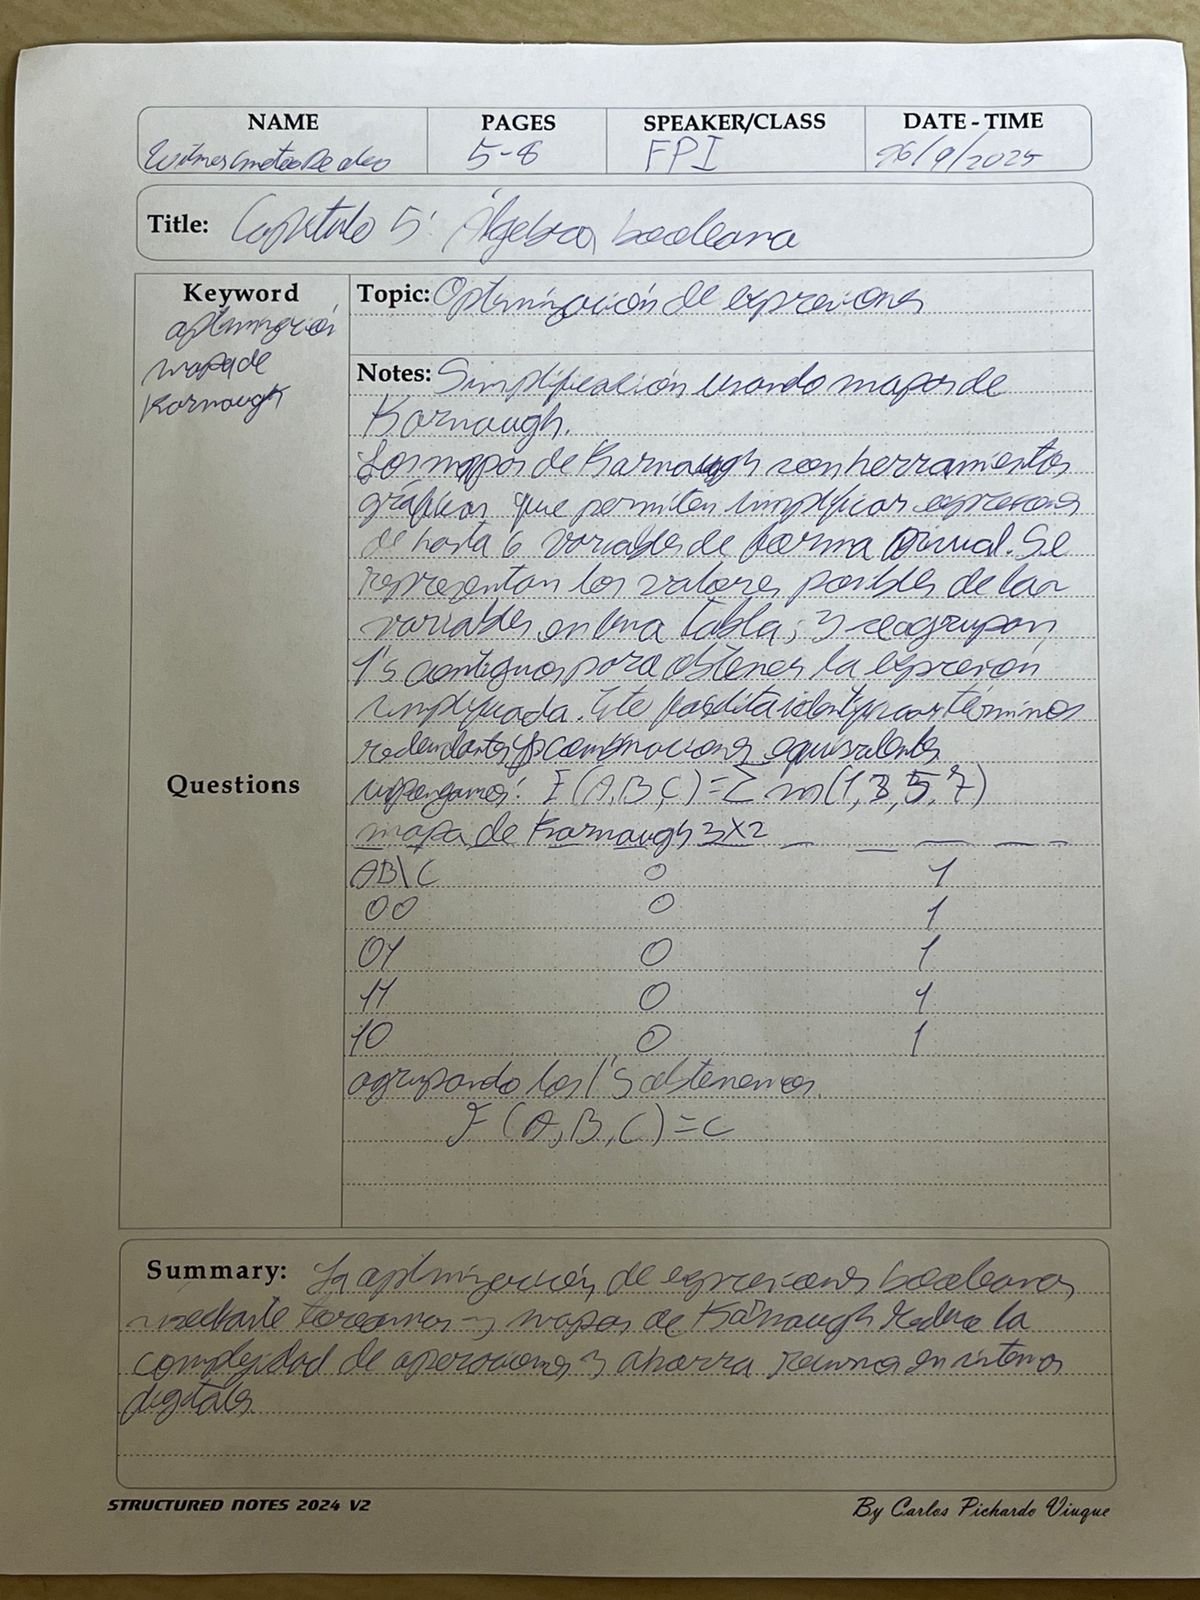 NAME PAGES SPEAKER/CLASS DATE - TIME
5-8 FPI 26/9/2025
Title: Capitulo 5: Álgebra booleana
Keyword
optimización
mapa de
Karnaugh
Topic: Optimización de expresiones
Notes: Simplificación usando mapas de
Karnaugh.
Los mapas de Karnaugh son herramientas
gráficas que permiten simplificar expresiones
de hasta 6 variables de forma visual. Se
representan los valores posibles de las
variables en una tabla, y se agrupan
1's contiguos para obtener la expresión
simplificada. Este facilita identificar términos
redundantes y combinaciones equivalentes
Questions
supongamos: F(A,B,C)=Σm(1,3,5,7)
mapa de Karnaugh 3x2
AB\C 0 1
00 0 1
01 0 1
11 0 1
10 0 1
agrupando los 1's obtenemos
F(A,B,C)=C
Summary: La optimización de expresiones booleanas
mediante teoremas y mapas de Karnaugh reduce la
complejidad de operaciones y ahorra recursos en sistemas
digitales
STRUCTURED NOTES 2024 V2
By Carlos Pichardo Viuque